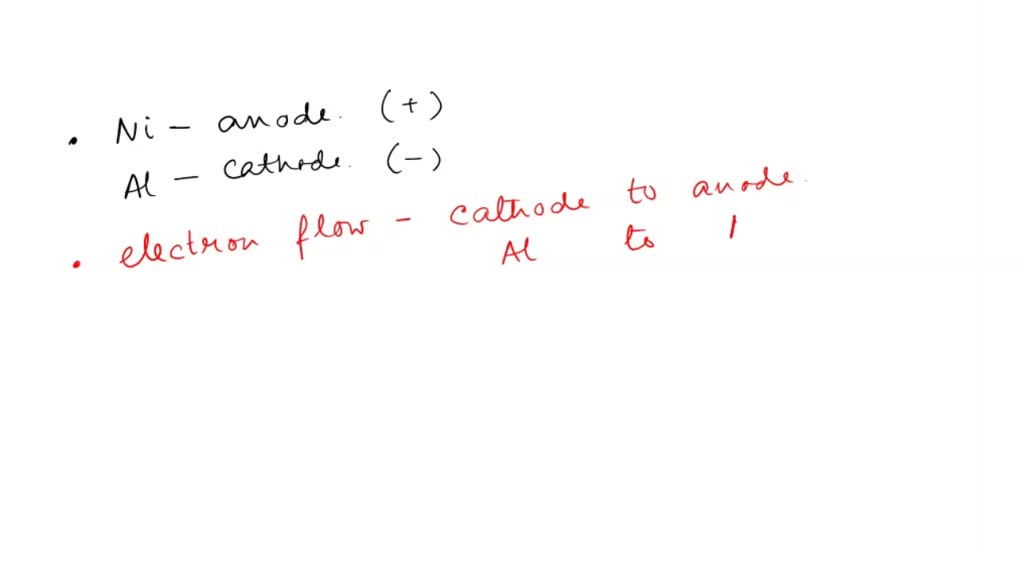 • Ni - anode. (+)
Al - cathode. (-)
• electron flow - cathode to anode.
Al to